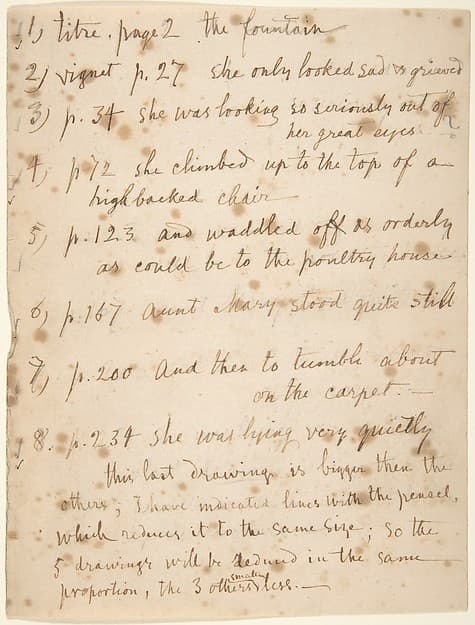 1) titre. page 2 the fountain
2) vignet p. 27 she only looked sad & grieved
3) p. 34 she was looking so seriously out of
her great eyes
4) p 72 she climbed up to the top of a
high backed chair
5) p. 123 and waddled off as orderly
as could be to the poultry house
6) p. 167 Aunt Mary stood quite still
7) p. 200 And then to tumble about
on the carpet. —
8. p. 234 she was lying very quietly
this last drawing is bigger then the
others; I have indicated lines with the pencel,
which reduces it to the same size; so the
5 drawings will be in the same
smaller
proportion, the 3 others less. —